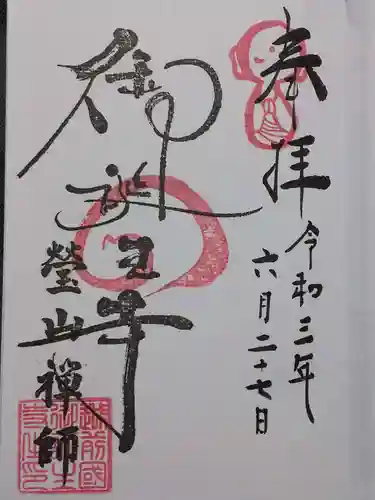 奉拝
令和三年
六月二十七日
御誕生寺
瑩山禅師